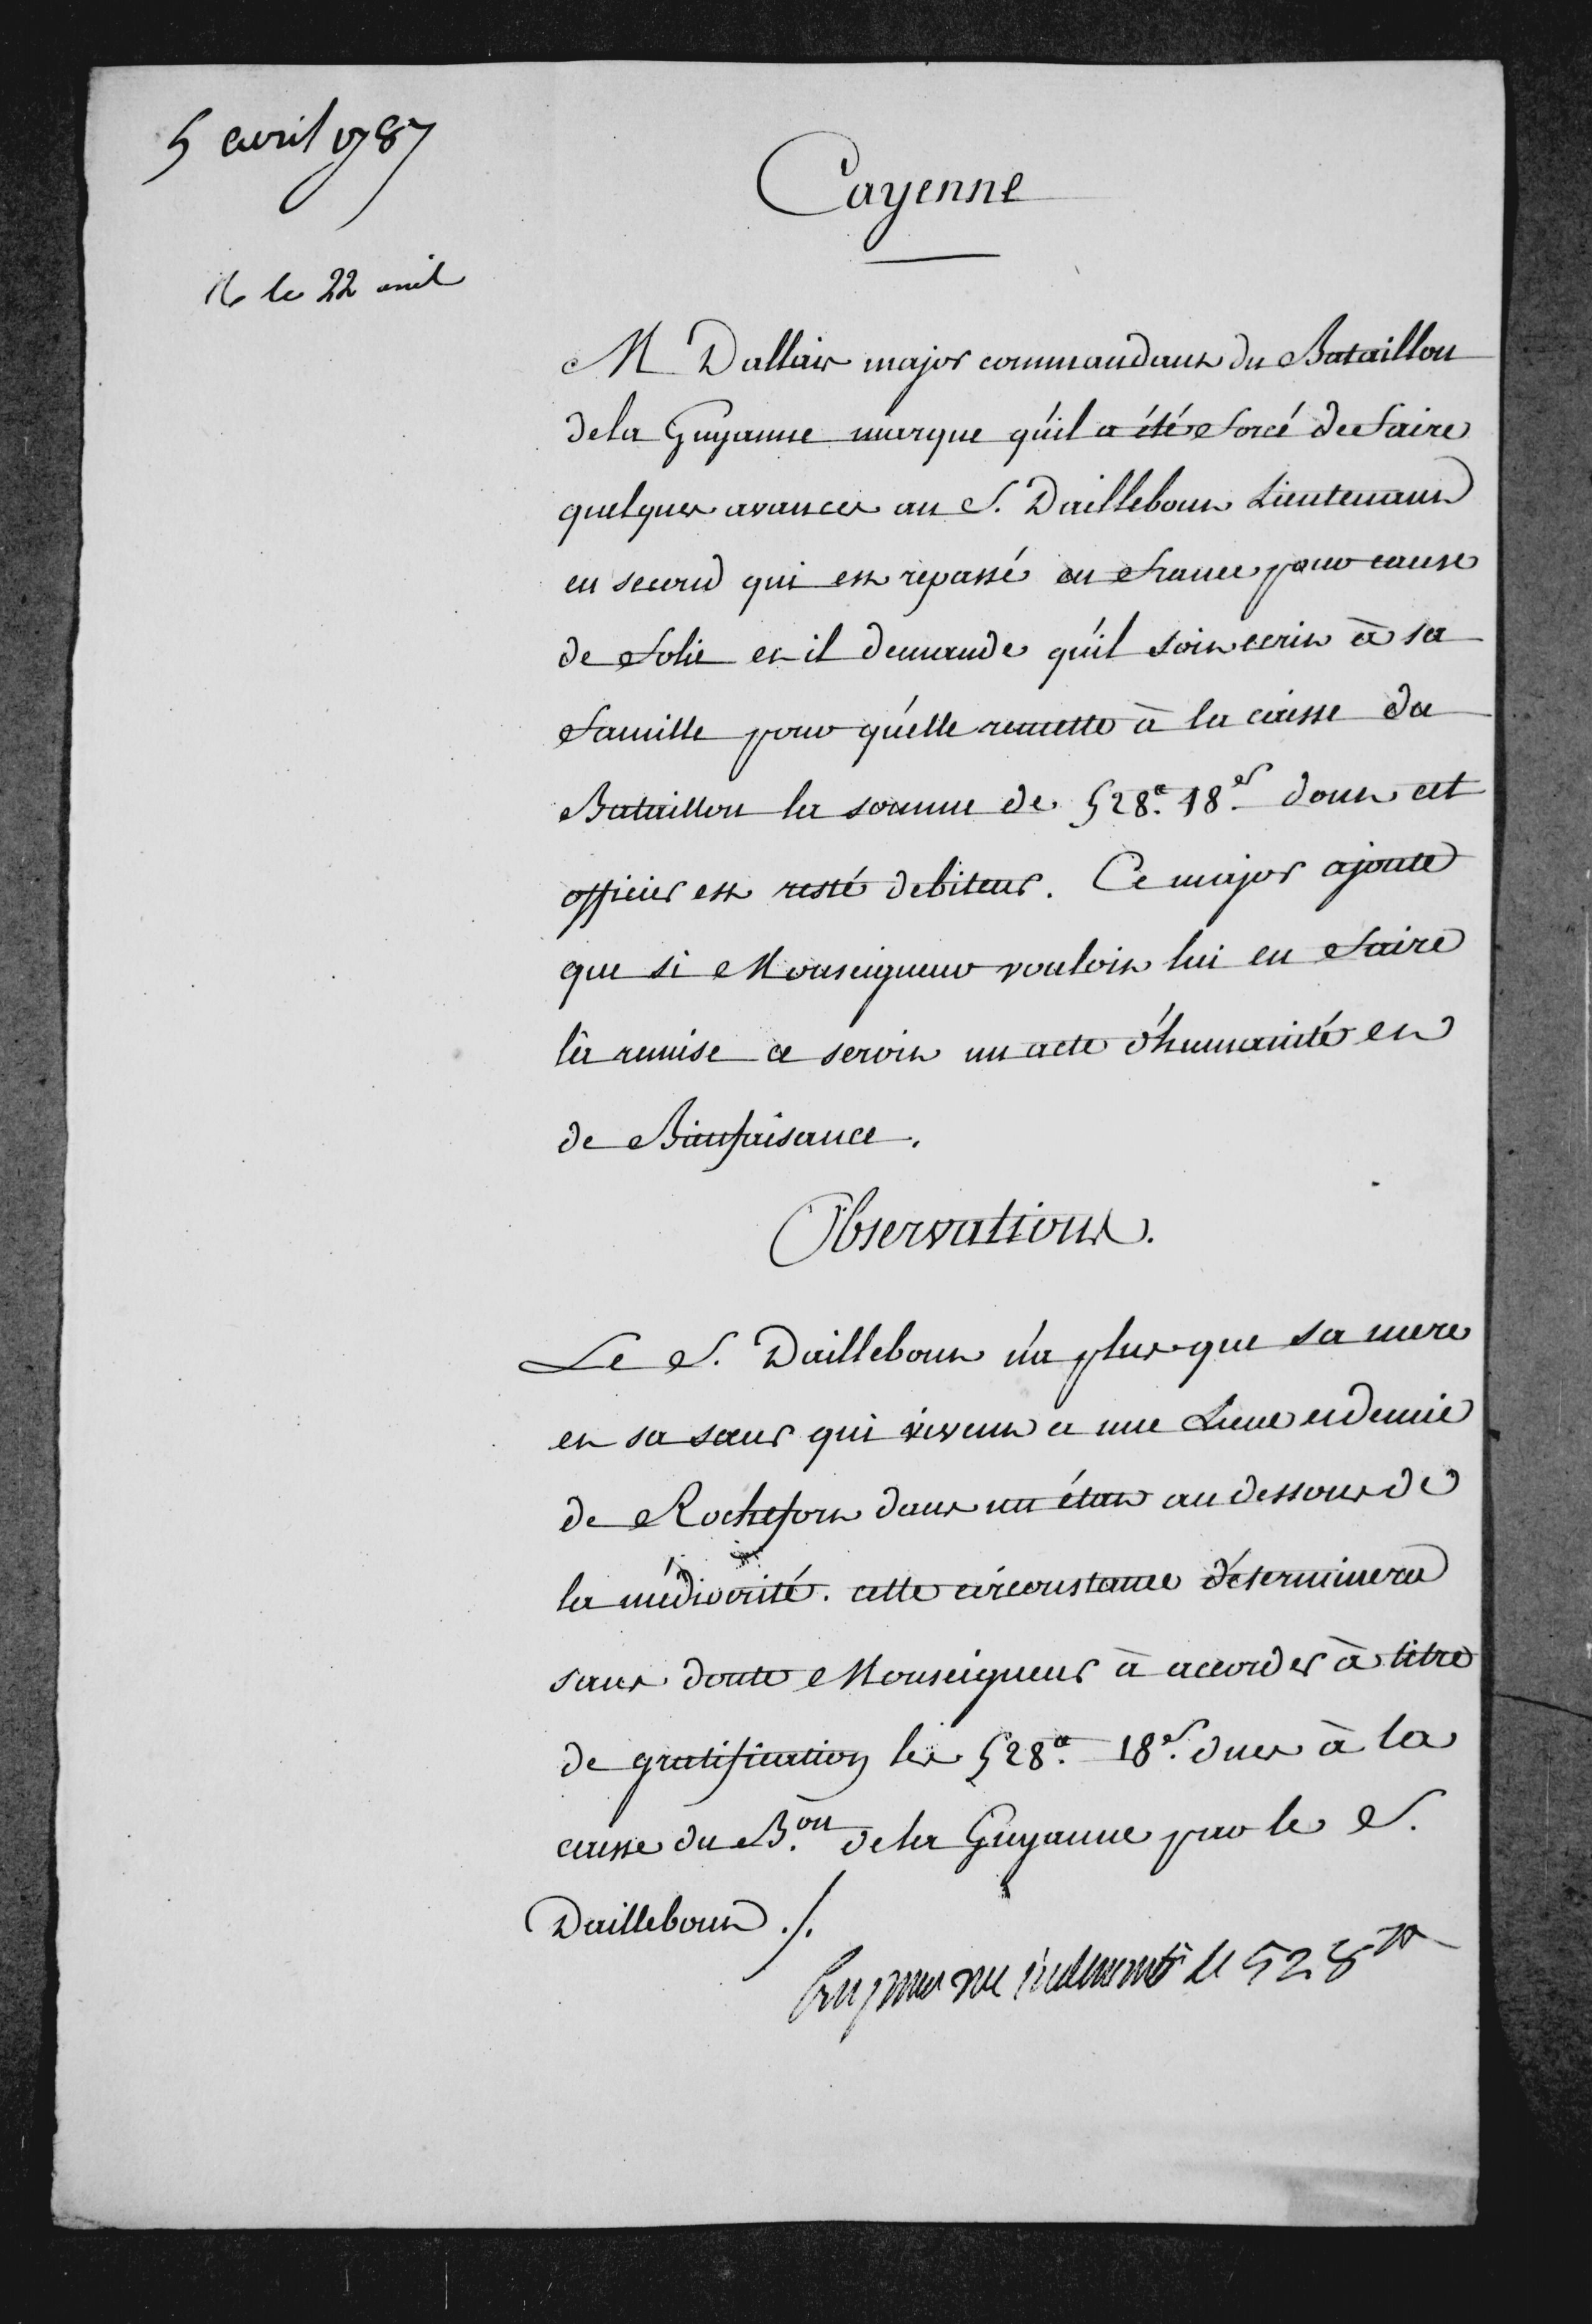 5 avril 1787
le 22 avril
Cayenne
M Dallais major commandant du Bataillon
de la Guyanne marque qu'il a été forcé de faire
quelques avances au S. Daillebout Lieutenant
en second qui est repassé en France pour cause
de folie et il demande qu'il soit ecrit à sa
famille pour qu'elle remette à la caisse du
Bataillon la somme de 528.# 18.s dont cet
officier est resté debiteur. Ce major ajoute
que si Monseigneur vouloit lui en faire
la remise ce seroit un acte d'humanité et
de Bienfaisance.
Observations.
Le S. Daillebout n'a plus que sa mere
et sa sœur qui vivent a une Lieue et demie
de Rochefort dans un état au dessous de
la médiocrité. cette circonstance déterminera
sans doute Monseigneur à accorder à titre
de gratification les 528.# 18.s dues à la
caisse du B.on de la Guyanne par le S.
Daillebout ./.
de 528#